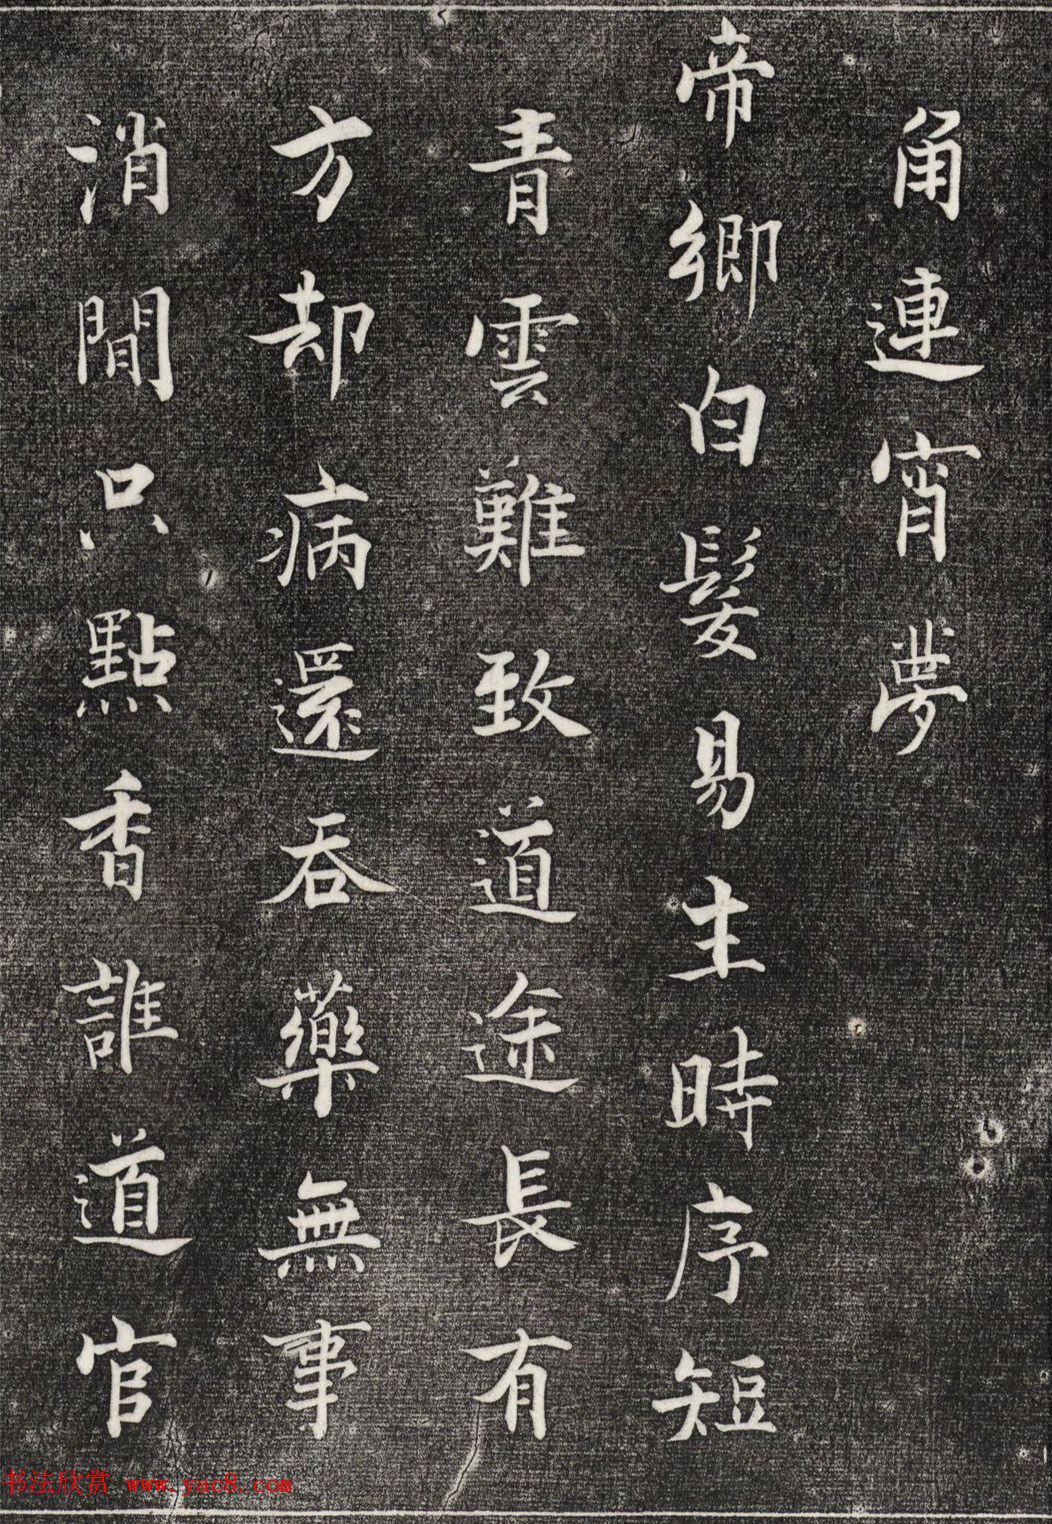 角連宵夢
帝鄉白髮易生時序短
青雲難致道途長有
方却病還吞藥無事
消閒只點香誰道官
书法欣赏 www.yac8.com